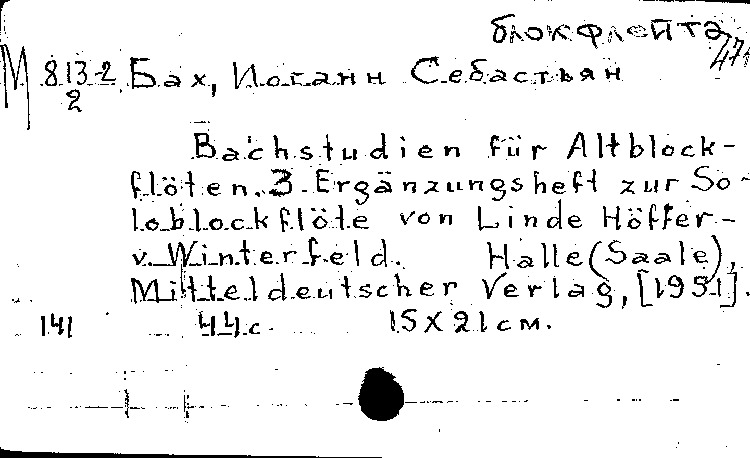 блокфлейта
471
М 813-2 Бах, Иоганн Себастьян
2
Bachstudien für Altblock-
flöten. 3. Ergänzungsheft zur So-
loblockflöte von Linde Höffer-
v. Winterfeld. Halle (Saale),
Mitteldeutscher Verlag, [1951].
141 44 с. 15 X 21 см.